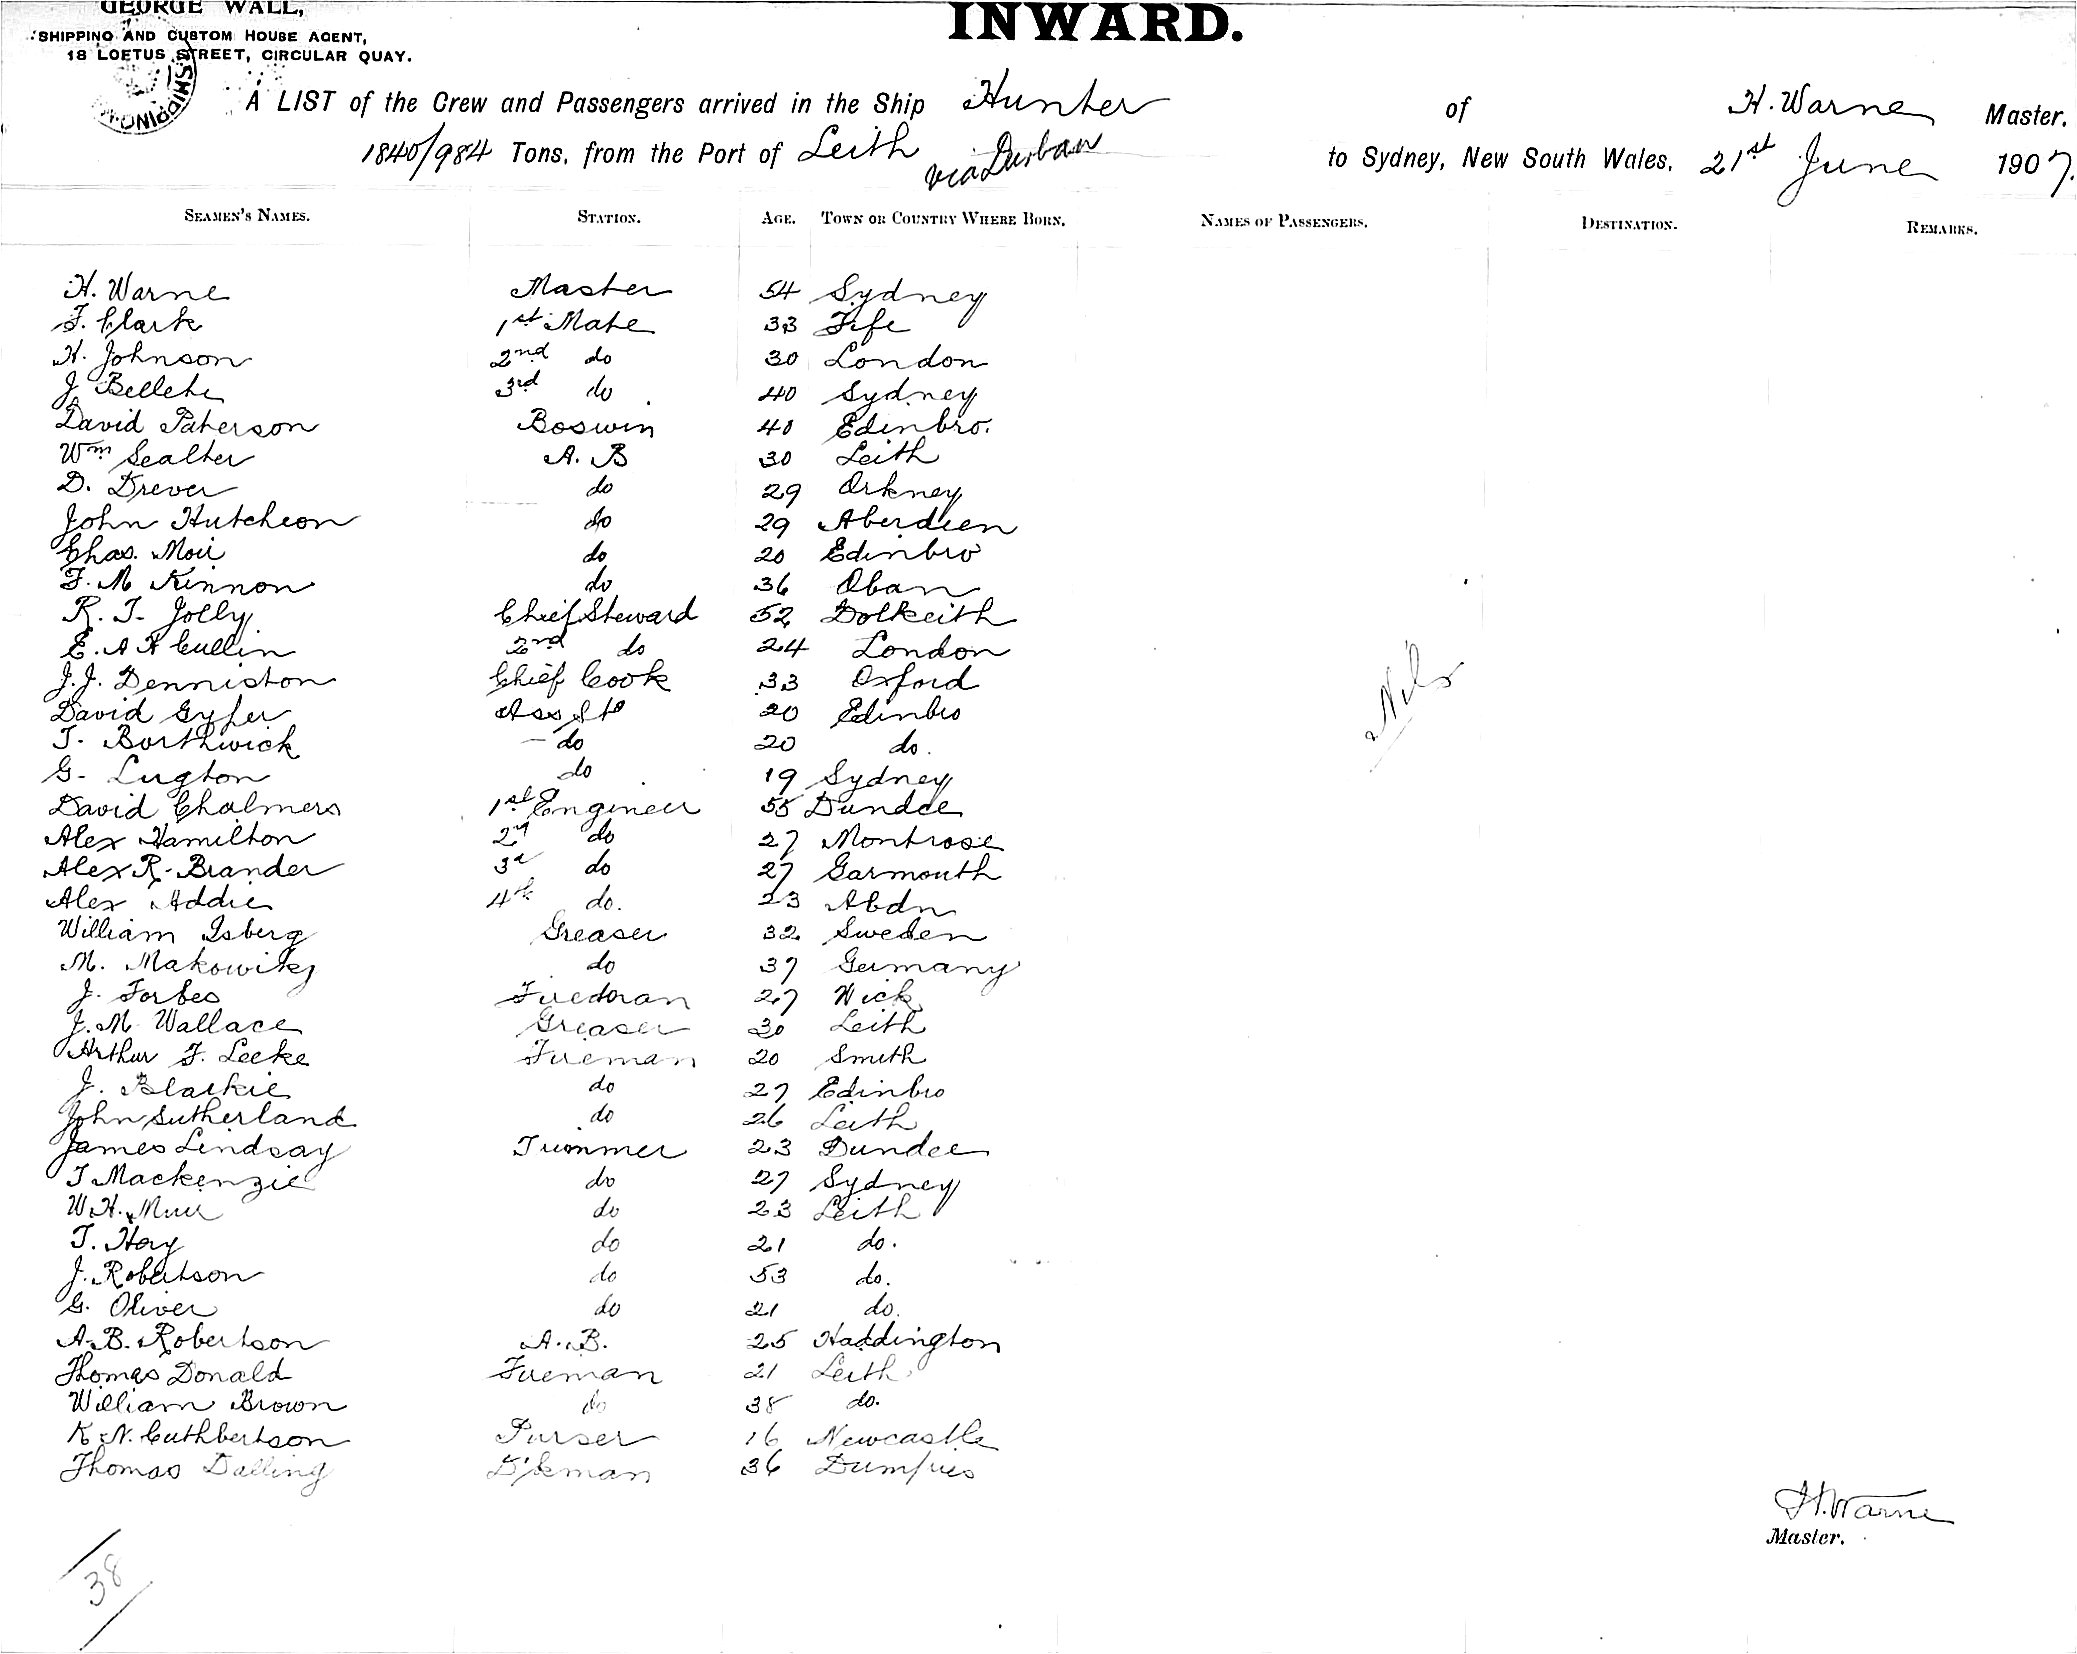 GEORGE WALL,
SHIPPING AND CUSTOM HOUSE AGENT,
18 LOFTUS STREET, CIRCULAR QUAY.
SHIPPING
INWARD.
A LIST of the Crew and Passengers arrived in the Ship Hunter of H. Warne Master.
1840/984 Tons, from the Port of Leith via Durban to Sydney, New South Wales, 21st June 1907.
SEAMEN'S NAMES. STATION. AGE. TOWN OR COUNTRY WHERE BORN. NAMES OF PASSENGERS. DESTINATION. REMARKS.
H. Warne Master 54 Sydney
F. Clark 1st Mate 33 Fife
H. Johnson 2nd do 30 London
J 3rd do 40 Sydney
David Paterson Boswin 40 Edinbro.
Wm Sealter A. B 30 Leith
D. Drever do 29 Orkney
John Hutcheon do 29 Aberdeen
Chas. Moir do 20 Edinbro
F. M Kinnon do 36 Oban
R. T. Jolly Chief Steward 52 Dolkeith
E. A R Cullin 2nd do 24 London
J. J. Denniston Chief Cook 33 Oxford
David Gyfer Asst 20 Edinbro
T. Borthwick do 20 do.
G. Lugton do 19 Sydney
David Chalmers 1st Engineer 55 Dundee
Alex Hamilton 2nd do 27 Montrose
Alex R. Brander 3d do 27 Garmouth
Alex Addie 4th do. 23 Abdn
William Isberg Greaser 32 Sweden
M. Makowitz do 37 Germany
J. Forbes Fireman 27 Wick
J. M Wallace Greaser 30 Leith
Arthur F. Leeke Fireman 20 Smith
J. Blackie do 27 Edinbro
John Sutherland do 26 Leith
James Lindsay Trimmer 23 Dundee
T Mackenzie do 27 Sydney
W. H. Muir do 23 Leith
T. Hay do 21 do.
J. Robertson do 53 do.
G. Oliver do 21 do.
A. B. Robertson A. B. 25 Haddington
Thomas Donald Fireman 21 Leith
William Brown do 38 do.
K. N. Cuthbertson Purser 16 Newcastle
Thomas Dalling D'keman 36 Dumfries
Nil
H. Warne
Master.
38